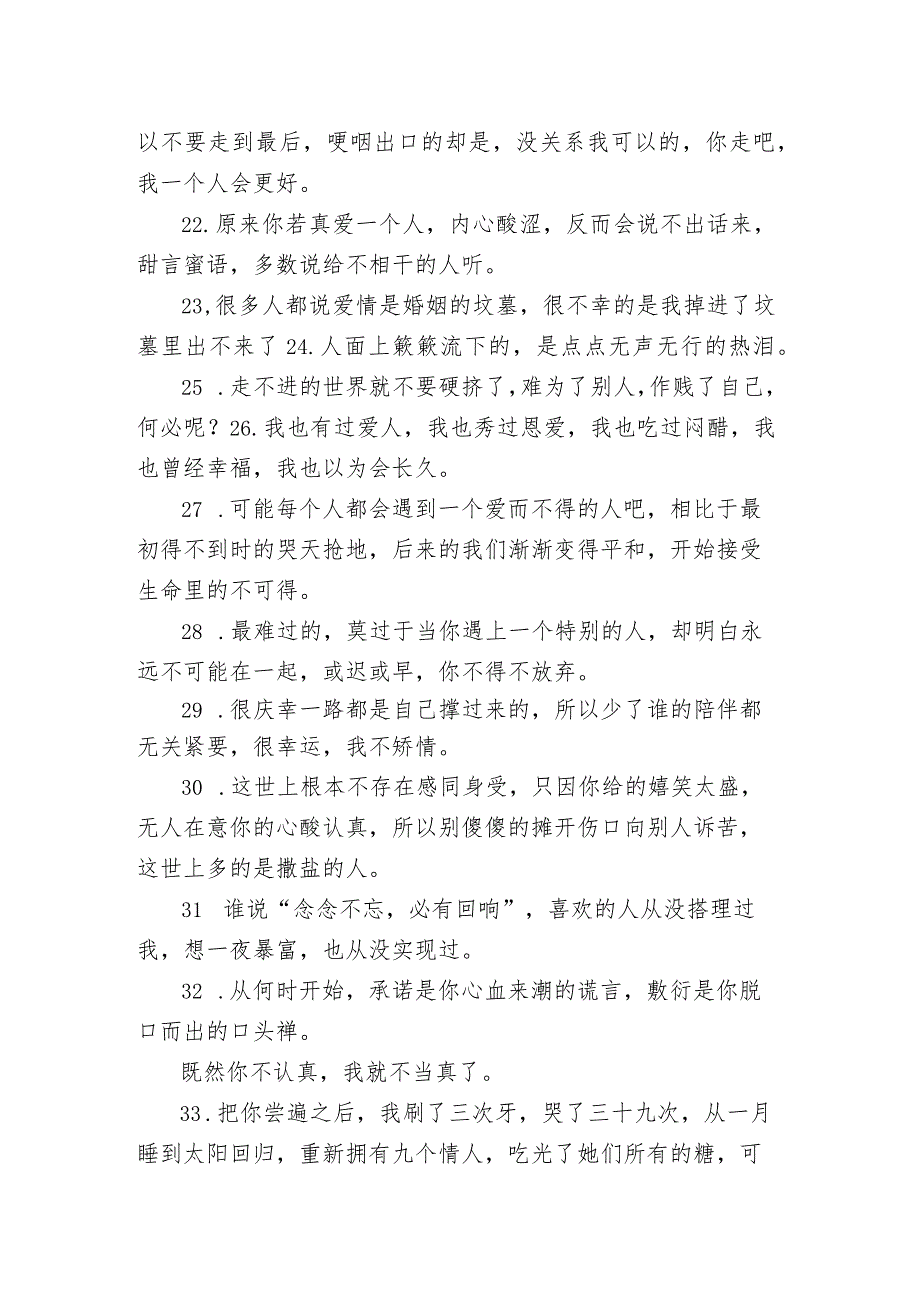 以不要走到最后，哽咽出口的却是，没关系我可以的，你走吧，
我一个人会更好。
22.原来你若真爱一个人，内心酸涩，反而会说不出话来，
甜言蜜语，多数说给不相干的人听。
23,很多人都说爱情是婚姻的坟墓，很不幸的是我掉进了坟
墓里出不来了 24.人面上簌簌流下的，是点点无声无行的热泪。
25 .走不进的世界就不要硬挤了，难为了别人，作贱了自己，
何必呢？26.我也有过爱人，我也秀过恩爱，我也吃过闷醋，我
也曾经幸福，我也以为会长久。
27 .可能每个人都会遇到一个爱而不得的人吧，相比于最
初得不到时的哭天抢地，后来的我们渐渐变得平和，开始接受
生命里的不可得。
28 .最难过的，莫过于当你遇上一个特别的人，却明白永
远不可能在一起，或迟或早，你不得不放弃。
29 .很庆幸一路都是自己撑过来的，所以少了谁的陪伴都
无关紧要，很幸运，我不矫情。
30 .这世上根本不存在感同身受，只因你给的嬉笑太盛，
无人在意你的心酸认真，所以别傻傻的摊开伤口向别人诉苦，
这世上多的是撒盐的人。
31 谁说“念念不忘，必有回响”，喜欢的人从没搭理过
我，想一夜暴富，也从没实现过。
32 .从何时开始，承诺是你心血来潮的谎言，敷衍是你脱
口而出的口头禅。
既然你不认真，我就不当真了。
33.把你尝遍之后，我刷了三次牙，哭了三十九次，从一月
睡到太阳回归，重新拥有九个情人，吃光了她们所有的糖，可